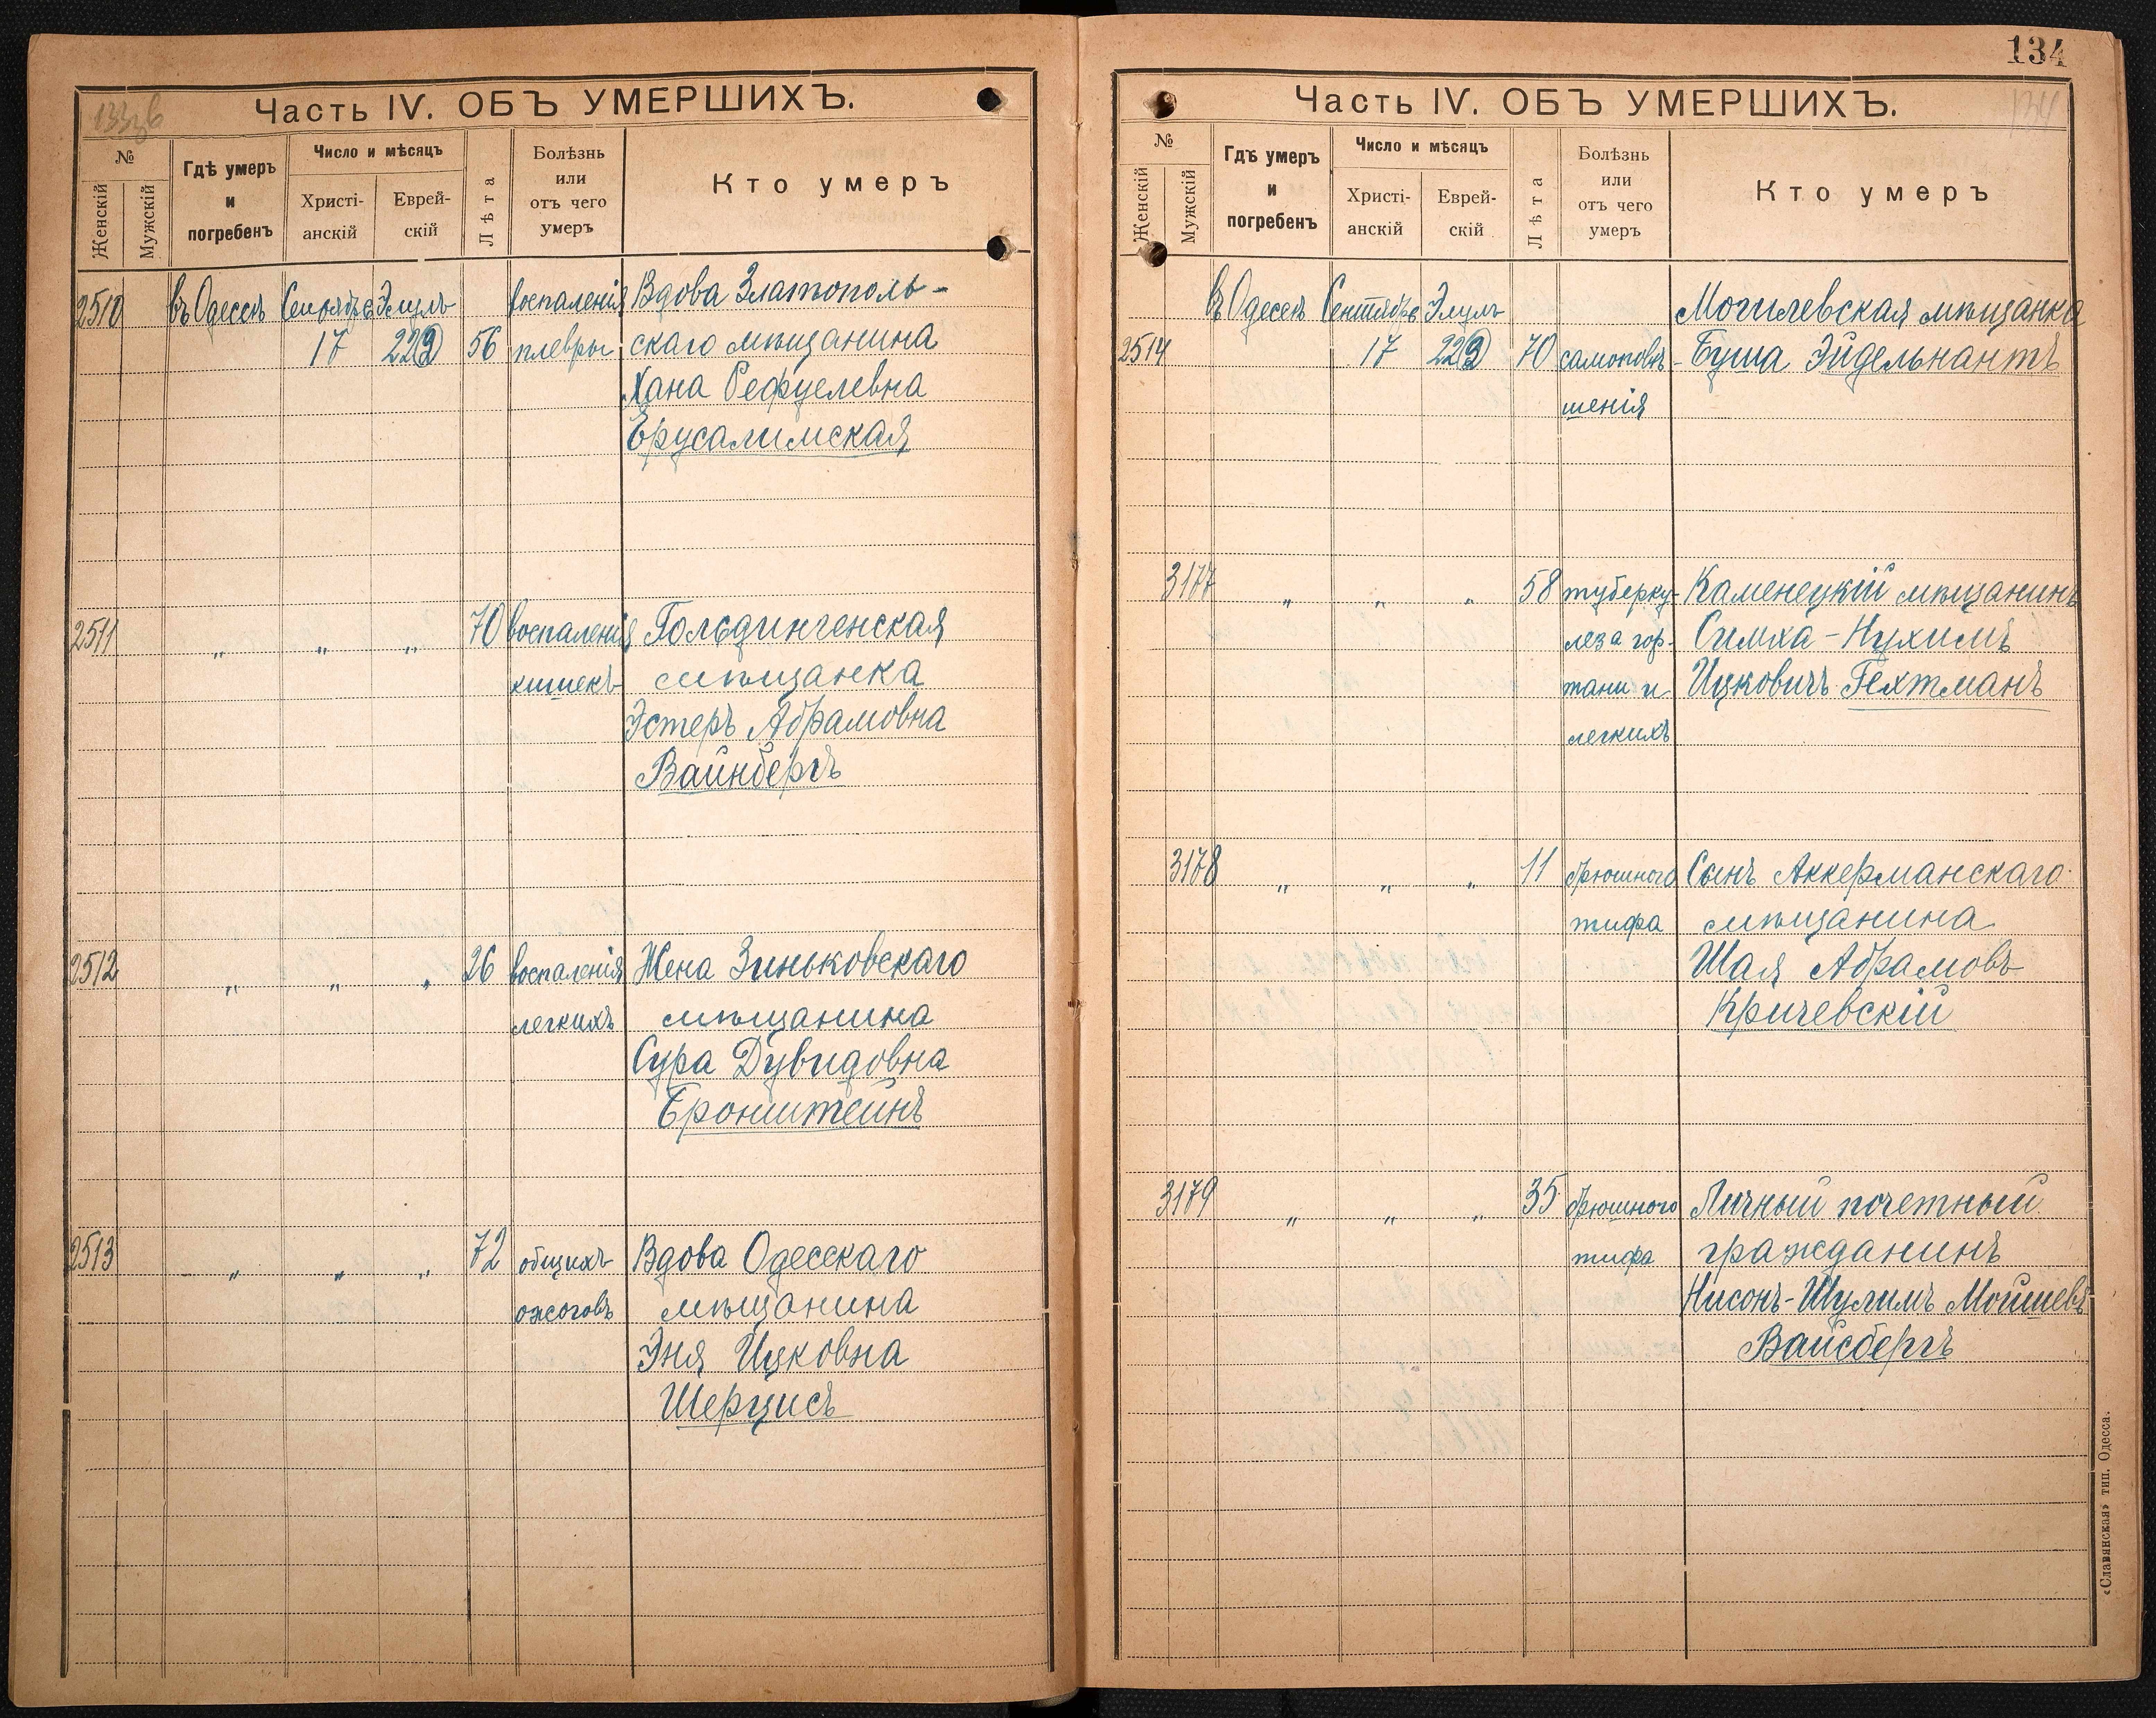 133 об
Часть IV. ОБЪ УМЕРШИХЪ.
№
Женскій
Мужскій
Гдѣ умеръ
и
погребенъ
Число и мѣсяцъ
Христі-
анскій
Еврей-
скій
Лѣта
Болѣзнь
или
отъ чего
умеръ
Кто умеръ
2510 въ Одессѣ Сентябрь Элулъ воспаленія Вдова Златополь-
17 22 56 плевры скаго мѣщанина
Хана Рефулевна
Ерусалимская
2511 „ „ „ 70 воспаленія Гольдингенская
кишекъ мѣщанка
Эстеръ Абрамовна
Вайнбергъ
2512 „ „ „ 26 воспаленія Жена Зиньковскаго
легкихъ мѣщанина
Сура Дувидовна
Бронштейнъ
2513 „ „ „ 72 общихъ Вдова Одесскаго
ожоговъ мѣщанина
Эня Ицковна
Шерцисъ
134
134
Часть IV. ОБЪ УМЕРШИХЪ.
№
Женскій
Мужскій
Гдѣ умеръ
и
погребенъ
Число и мѣсяцъ
Христі-
анскій
Еврей-
скій
Лѣта
Болѣзнь
или
отъ чего
умеръ
Кто умеръ
въ Одессѣ Сентябрь Элулъ Могилевская мѣщанка
2514 17 22 70 самоповѣ- Буша Эйдельнантъ
шенія
3177 „ „ „ 58 туберку- Каменецкій мѣщанинъ
леза гор- Симха-Нухимъ
тани и Ицковичъ Гехтманъ
легкихъ
3178 „ „ „ 11 брюшного Сынъ Аккерманскаго
тифа мѣщанина
Шая Абрамовъ
Кричевскій
3179 „ „ „ 35 брюшного Личный почетный
тифа гражданинъ
Нисонъ-Шулимъ Мошиевъ
Вайсбергъ
«Славянская» тип. Одесса.